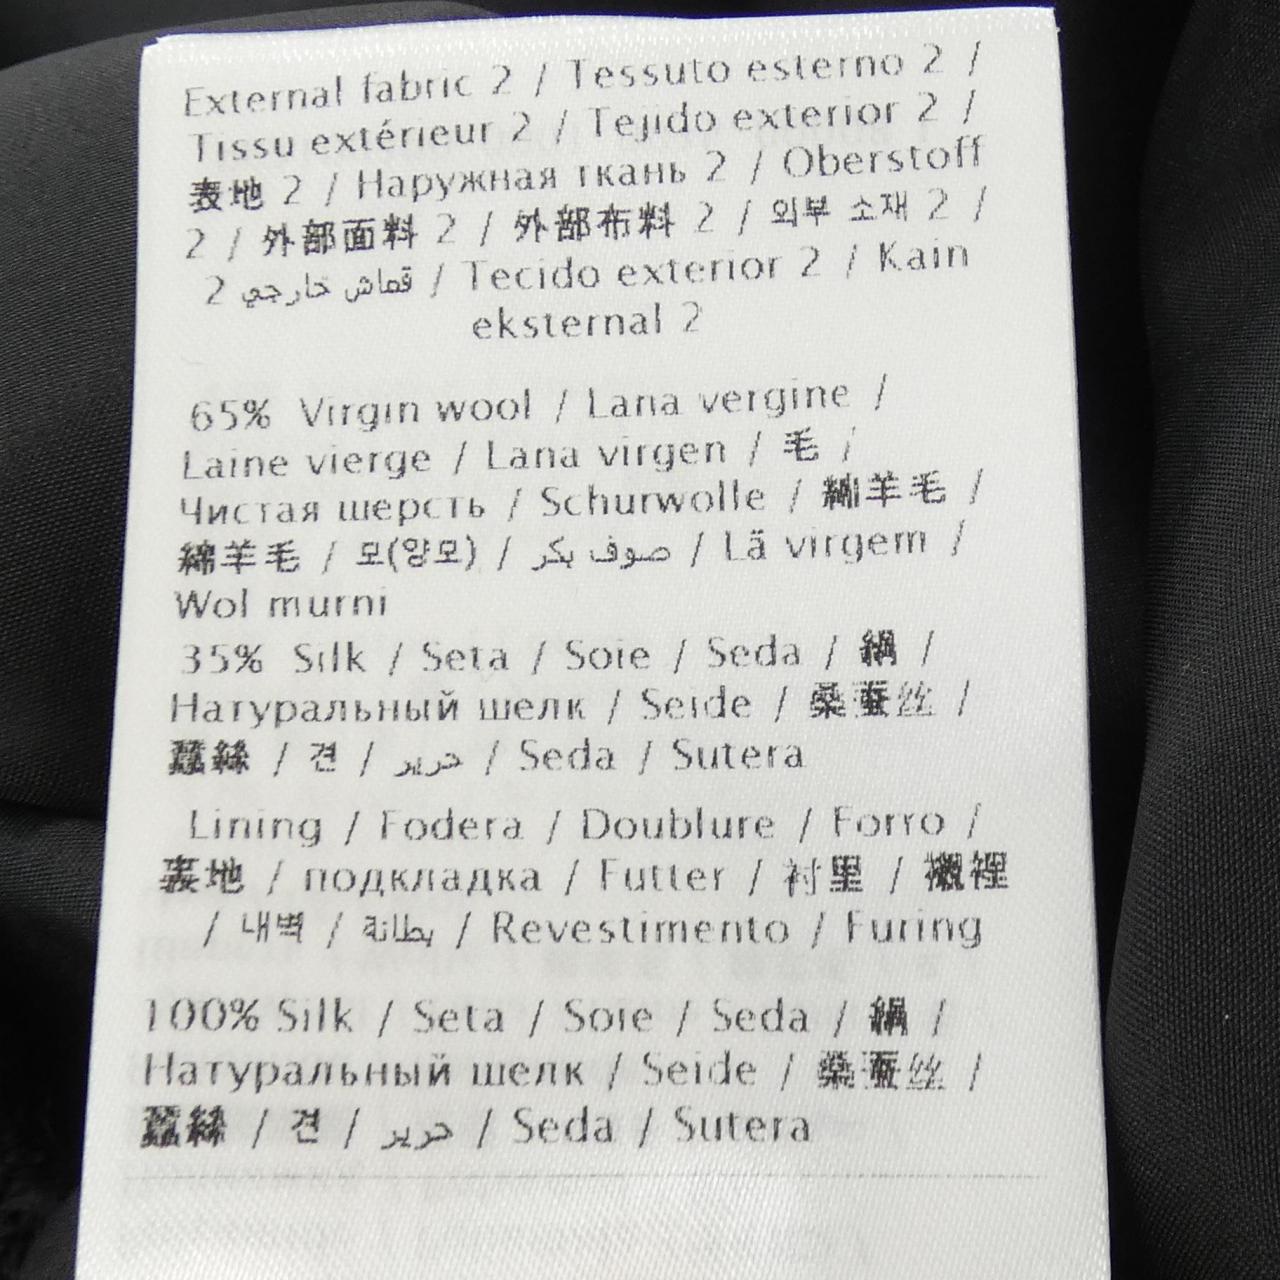 External fabric 2 / Tessuto esterno 2 /
Tissu extérieur 2 / Tejido exterior 2 /
表地 2 / Наружная ткань 2 / Oberstoff
2 / 外部面料 2 / 外部布料 2 / 외부 소재 2 /
قماش خارجي 2 / Tecido exterior 2 / Kain
eksternal 2
65% Virgin wool / Lana vergine /
Laine vierge / Lana virgen / 毛 /
Чистая шерсть / Schurwolle / 綿羊毛 /
綿羊毛 / 모(양모) / صوف بكر / Lã virgem /
Wol murni
35% Silk / Seta / Soie / Seda / 絹 /
Натуральный шелк / Seide / 桑蚕丝 /
蠶絲 / 견 / حرير / Seda / Sutera
Lining / Fodera / Doublure / Forro /
裏地 / подкладка / Futter / 衬里 / 襯裡
/ 내벽 / بطانة / Revestimento / Furing
100% Silk / Seta / Soie / Seda / 絹 /
Натуральный шелк / Seide / 桑蚕丝 /
蠶絲 / 견 / حرير / Seda / Sutera